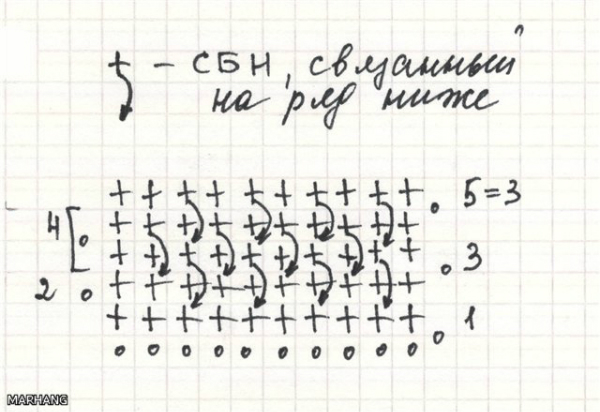 + – СБН, связанный
на ряд ниже
+ + + + + + + + + + . 5=3
4 [ + + + + + + + + + +
+ + + + + + + + + + . 3
2 . + + + + + + + + + +
+ + + + + + + + + + . 1
o o o o o o o o o o
MARHANG